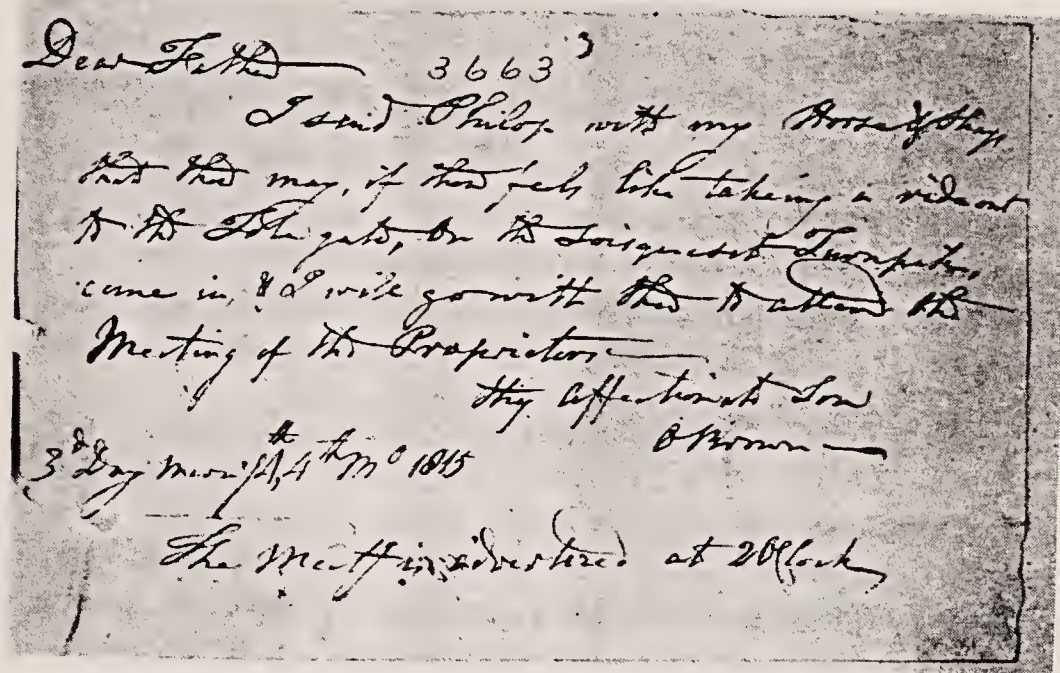 Dear Father 3663
I send Philop with my Horse & Shay
that thee may, if thou feels like taking a ride out
to the Tole gate, on the Loisquesset Turnpike,
come in, & I will go with thee to attend the
Meeting of the Proprietors
thy affectionate Son
O Brown
3d Day Morng 4th Mo 1815
The Meetg is advertized at 2 OClock